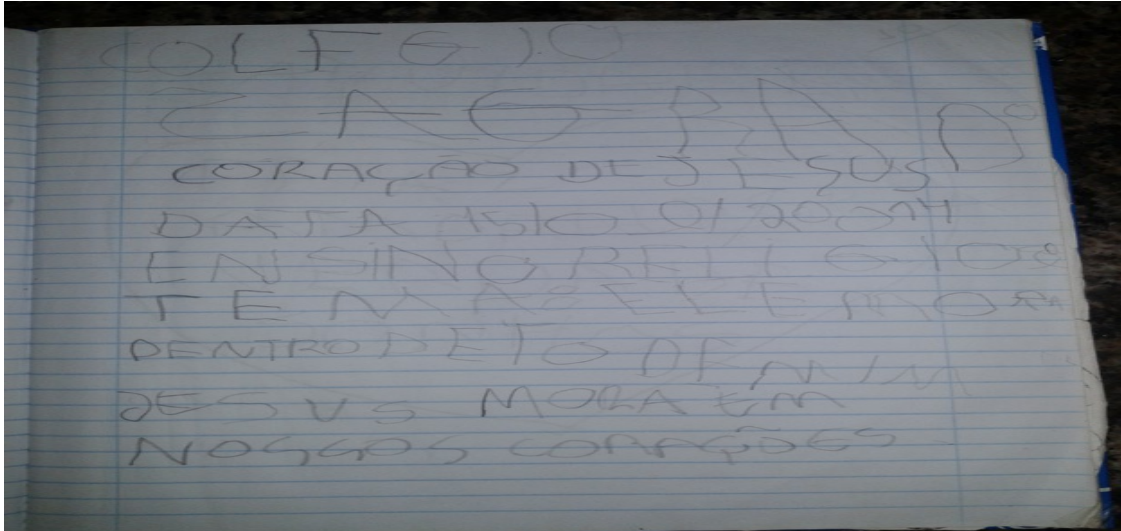 COLEGIO
SAGRADO
CORAÇÃO DE JESUS
DATA 15/10
ENSINO RELIGIOSO
TEMA= ELE MORA
DENTRO DE MIM
JESUS MORA EM
NOSSOS CORAÇÕES